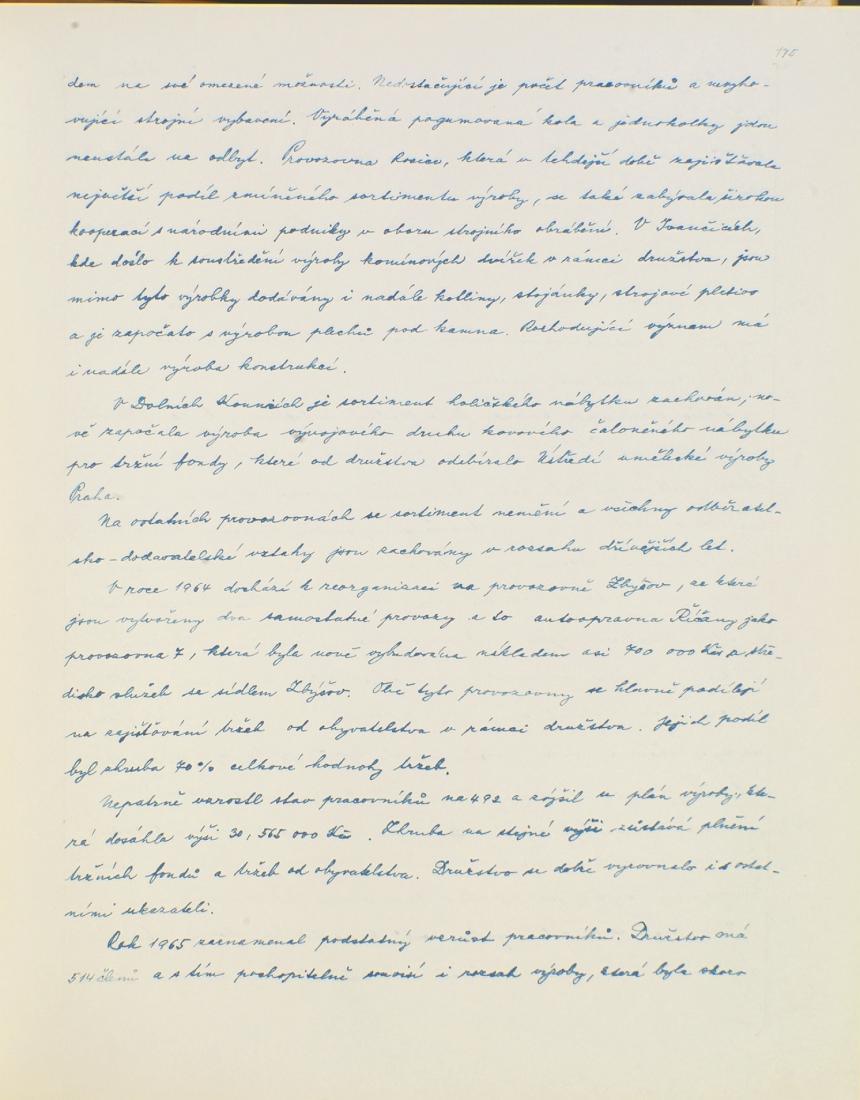 195
dem na své omezené možnosti. Nedostačující je počet pracovníků a nevyho-
vující strojní vybavení. Vyráběná pogumovaná kola a jednokolky jdou
neustále na odbyt. Provozovna Rosice, která v tehdejší době zajišťovala
největší podíl zmíněného sortimentu výroby, se také zabývala širokou
kooperací s národními podniky v oboru strojního obrábění. V Ivančicích,
kde došlo k soustředění výroby komínových dvířek v rámci družstva, jsou
mimo tyto výrobky dodávány i nadále kotliny, stojánky, strojové pletivo
a je započato s výrobou plechů pod kamna. Rozhodující význam má
i nadále výroba konstrukcí.
V Dolních Kounicích je sortiment holičského nábytku zachován, no-
vě započala výroba vývojového druhu kovového čaloněného nábytku
pro tržní fondy, které od družstva odebíralo Ústředí umělecké výroby
Praha.
Na ostatních provozovnách se sortiment nemění a všechny odběratel-
sko-dodavatelské vztahy jsou zachovány v rozsahu dřívějších let.
V roce 1964 dochází k reorganizaci na provozovně Zbýšov, ze které
jsou vytvořeny dva samostatné provozy a to autoopravna Říčany jako
provozovna 7, která byla nově vybudována nákladem asi 700 000 Kčs a stře-
disko služeb se sídlem Zbýšov. Obě tyto provozovny se hlavně podílejí
na zajišťování tržeb od obyvatelstva v rámci družstva. Jejich podíl
byl zhruba 70% celkové hodnoty tržeb.
Nepatrně vzrostl stav pracovníků na 492 a zvýšil se plán výroby, kte-
rá dosáhla výši 30,565 000 Kčs. Zhruba na stejné výši zůstává plnění
tržních fondů a tržeb od obyvatelstva. Družstvo se dobře vyrovnalo i s ostat-
ními ukazateli.
Rok 1965 zaznamenal podstatný vzrůst pracovníků. Družstvo má
514 členů a s tím pochopitelně souvisí i rozsah výroby, která byla skoro